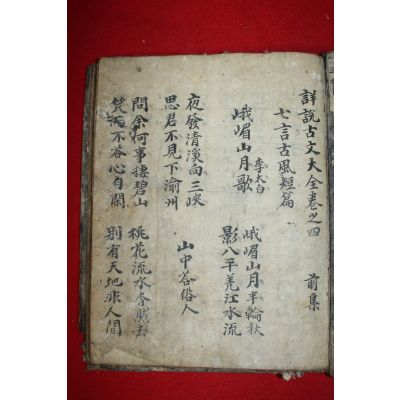 詳説古文大全卷之四 前集
七言古風短篇
峨嵋山月歌 李太白
峨嵋山月半輪秋
影入平羌江水流
夜發清溪向三峽
思君不見下渝州
山中答俗人
問余何事棲碧山
笑而不答心自閑
桃花流水杳然去
別有天地非人間